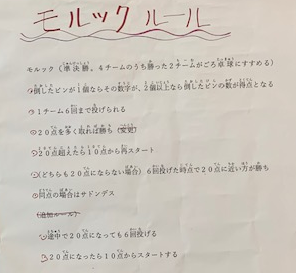 モルック ルール
モルック（準決勝。4チームのうち勝った2チームがごろ卓球にすすめる）
倒したピンが1個ならその数字が、2個以上なら倒したピンの数が得点となる
1チーム6回まで投げられる
20点を多く取れば勝ち（変更）
20点超えたら10点から再スタート
(どちらも20点にならない場合) 6回投げた時点で20点に近い方が勝ち
同点の場合はサドンデス
(追加ルール)
途中で20点になっても6回投げる
20点になったら10点からスタートする